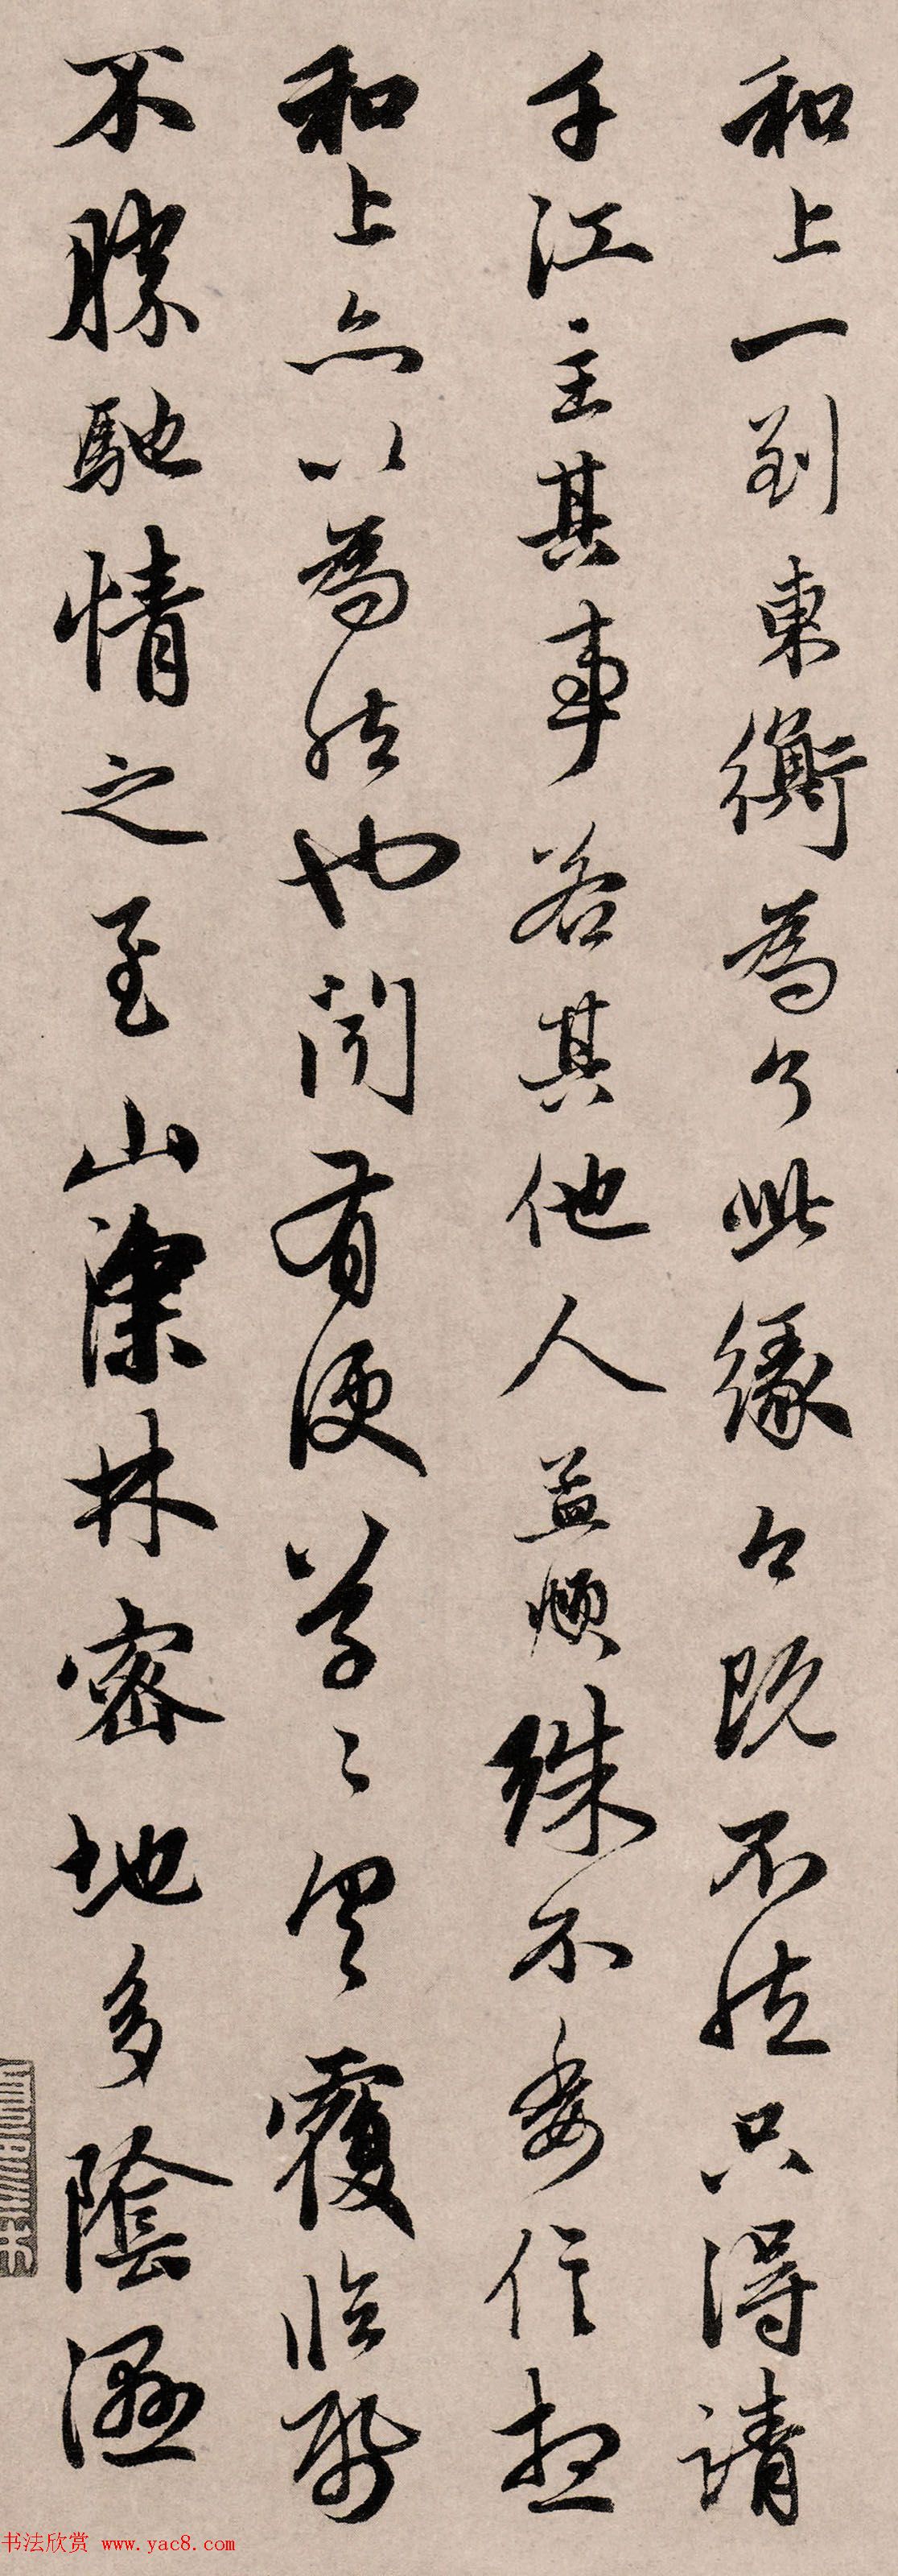 和上一到東衡為了此緣々既不然只得請
千江主其事若其他人益順殊不委信想
和上亦以為然也閒有便草々具覆臨紙
不勝馳情之至山深林密地多陰濕
书法欣赏 www.yac8.com